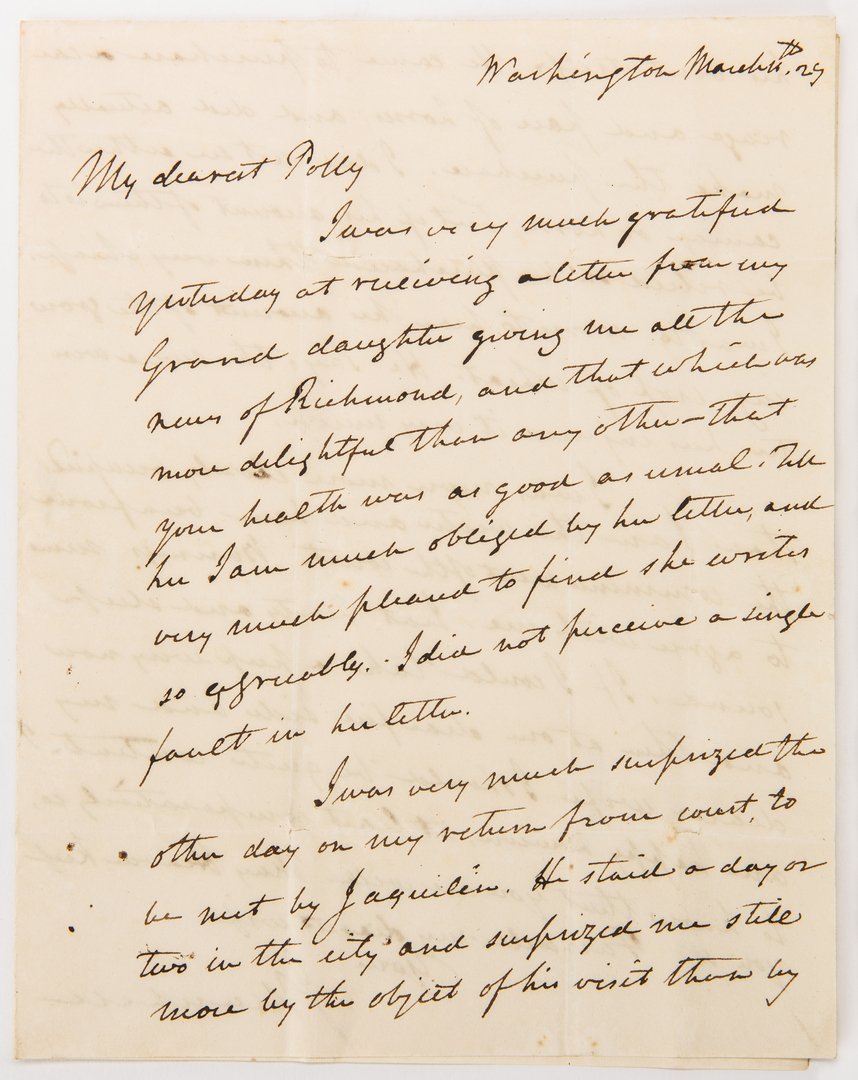 Washington March 11th. 29
My dearest Polly
I was very much gratified
yesterday at receiving a letter from my
Grand daughter giving me all the
news of Richmond, and that which was
more delightful than any other – that
your health was as good as usual. Tell
her I am much obliged by her letter, and
very much pleased to find she writes
so agreeably. I did not perceive a single
fault in her letter.
I was very much surprized the
other day on my return from court, to
be met by Jaquilin. He staid a day or
two in the city and surprized me still
more by the object of his visit than by